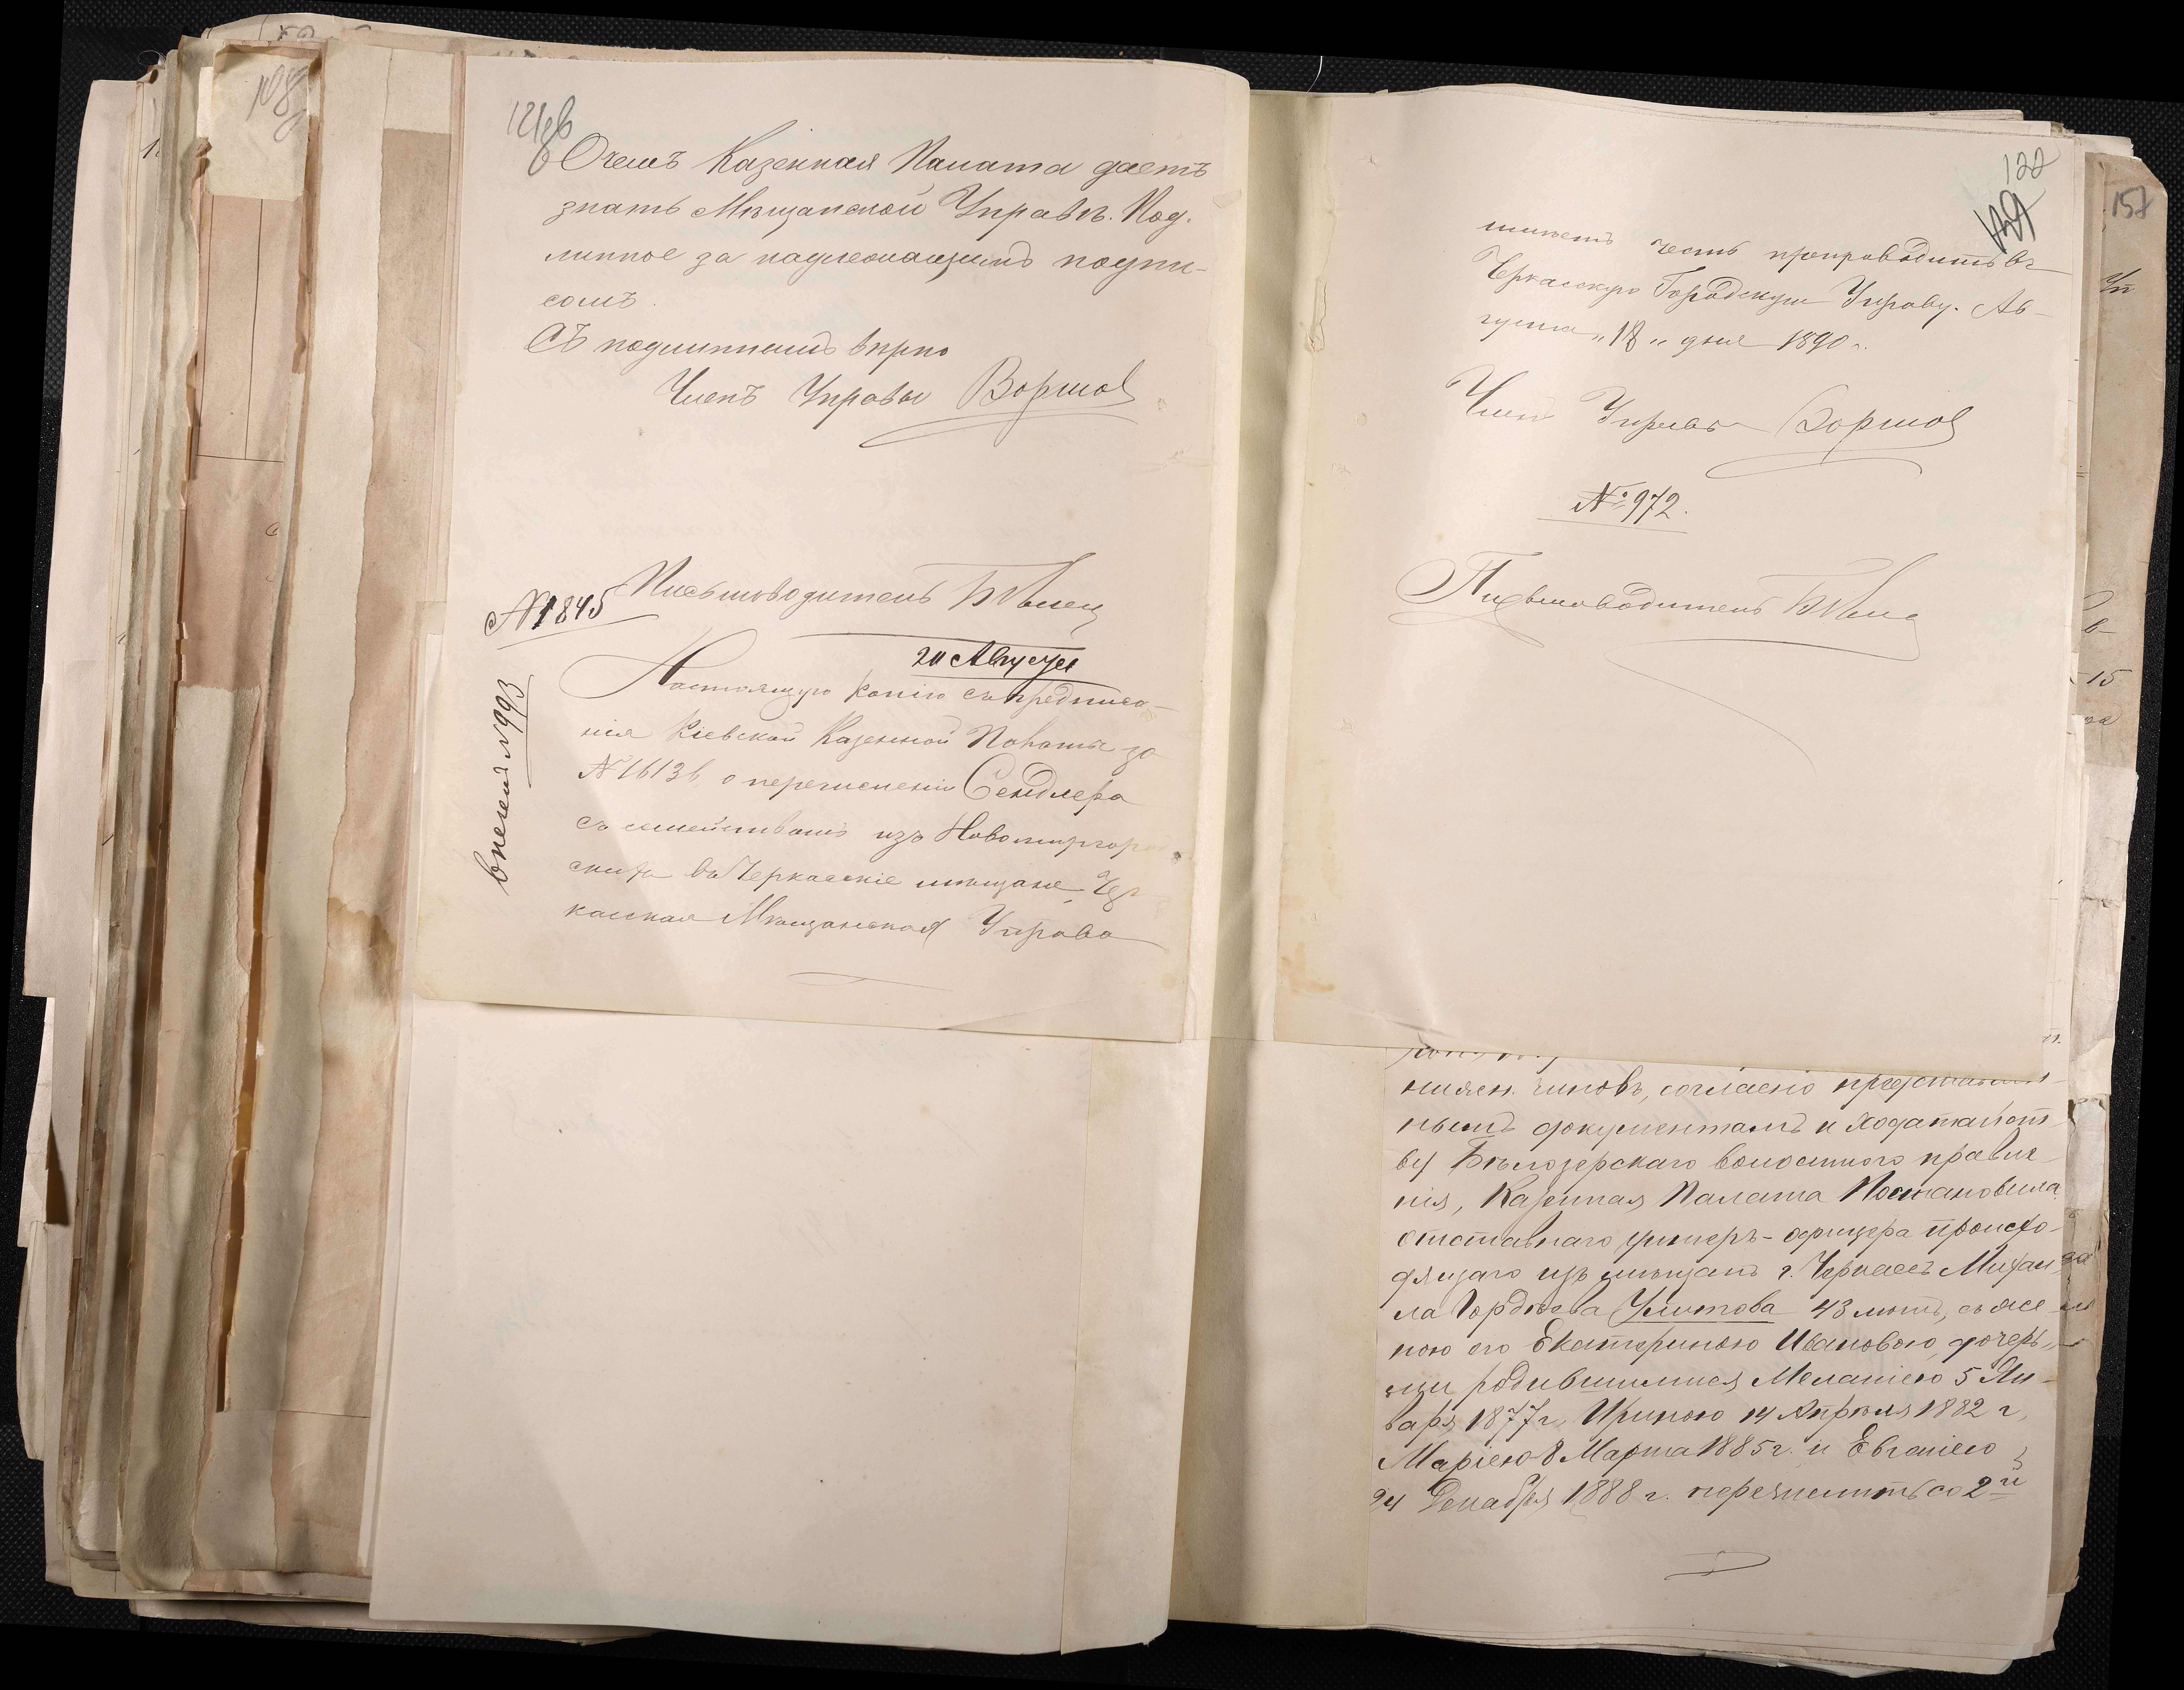 О чемъ Казенная Палата даетъ
знать Мѣщанской Управѣ. Под-
линное за надлежащимъ подпи-
сомъ.
Съ подлиннымъ вѣрно
Членъ Управы
Письмоводитель
№ 1845
20 Августа
Настоящую копію съ предписа-
нія Кіевской Казенной Палаты за
№ 16136 о перечисленіи Сендлера
съ семействомъ изъ Новомиргород
скихъ въ Черкасскіе мѣщане, Чер-
касская Мѣщанская Управа
№ 993
122
имѣетъ честь препроводить въ
Черкасскую Городскую Управу. Ав-
густа „18„ дня 1890 г.
Членъ Управы
№ 972.
Письмоводитель
157
15
нижн. чиновъ, согласно представлен-
нымъ документамъ и ходатайст
ву Бѣлозерскаго волостного правле
нія, Казенная Палата Постановила
отставнаго унтеръ-офицера происхо-
дящаго изъ мѣщанъ г. Черкассъ Михаи
ла Гордѣева Улитова 43 лѣтъ, съ же
ною его Екатериною Ивановою, дочерь-
ми родившимися Меланіею 5 Ян-
варя 1877 г, Ириною 14 Апрѣля 1882 г,
Маріею 8 Марта 1885 г. и Евгеніею
24 Декабря 1888 г. перечислить со 2й